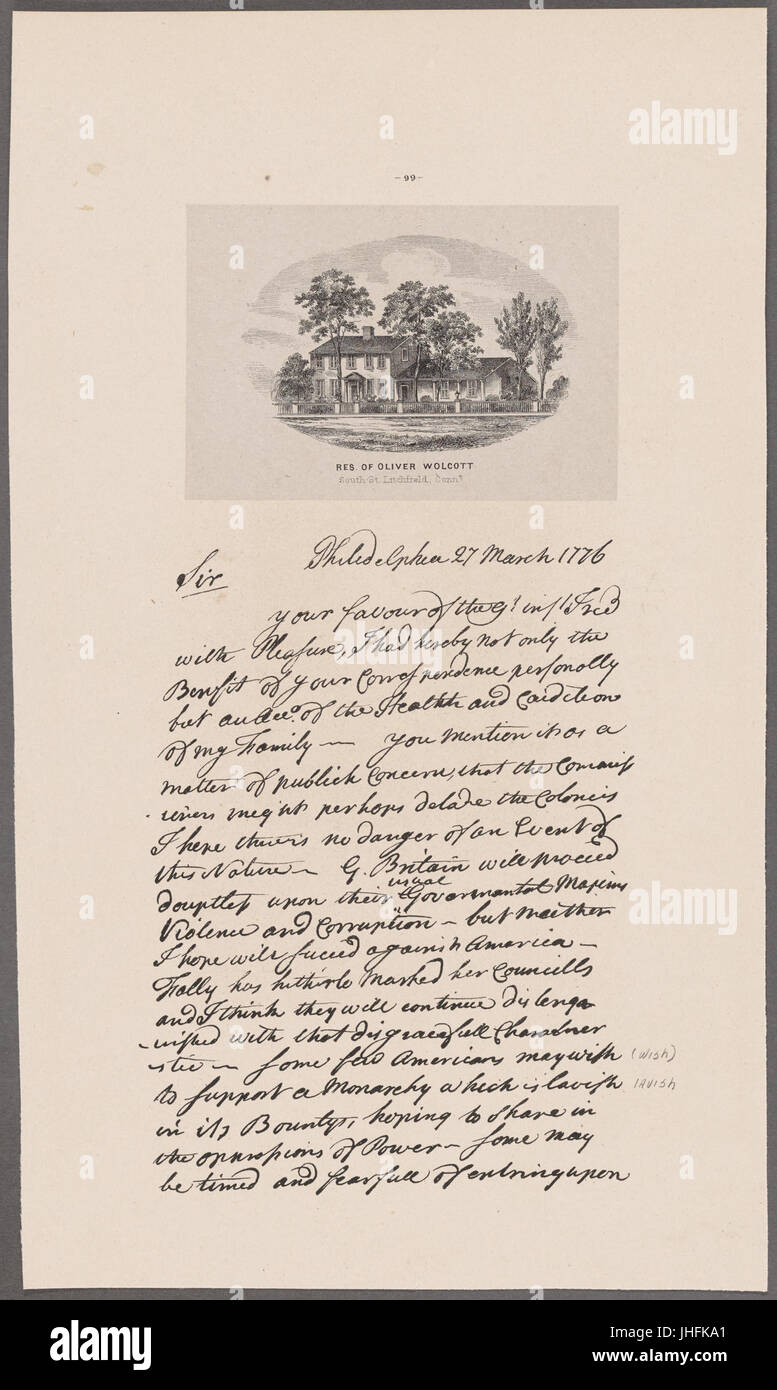 -99-
RES. OF OLIVER WOLCOTT
South St. Litchfield, Connt.
Philidelphia 27 March 1776
Sir
your favour of the 9t inst I recd
with Pleasure, I had hereby not only the
Benefit of your Correspondence personally
but an Acco. of the Health and Condition
of my Family — you mention it as a
matter of publick Concern, that the Commiss
-ioners might perhaps delude the Colonies
I hope there is no danger of an Event of
this Nature — G. Britain will proceed
doubtless upon their usual Governmental Maxims
Violence and Corruption — but neither
I hope will succeed against America —
Folly has hitherto Marked her Councills
and I think they will continue distengu
-uished with that disgracefull Charecter
-stic — some few Americans may wish (wish)
to support a Monarchy which is lavish lavish
in its Bountys, hoping to share in
the oppressions of Power — some may
be timed and fearfull of entring upon
alamy
alamy
Image ID: JHFKA1
www.alamy.com